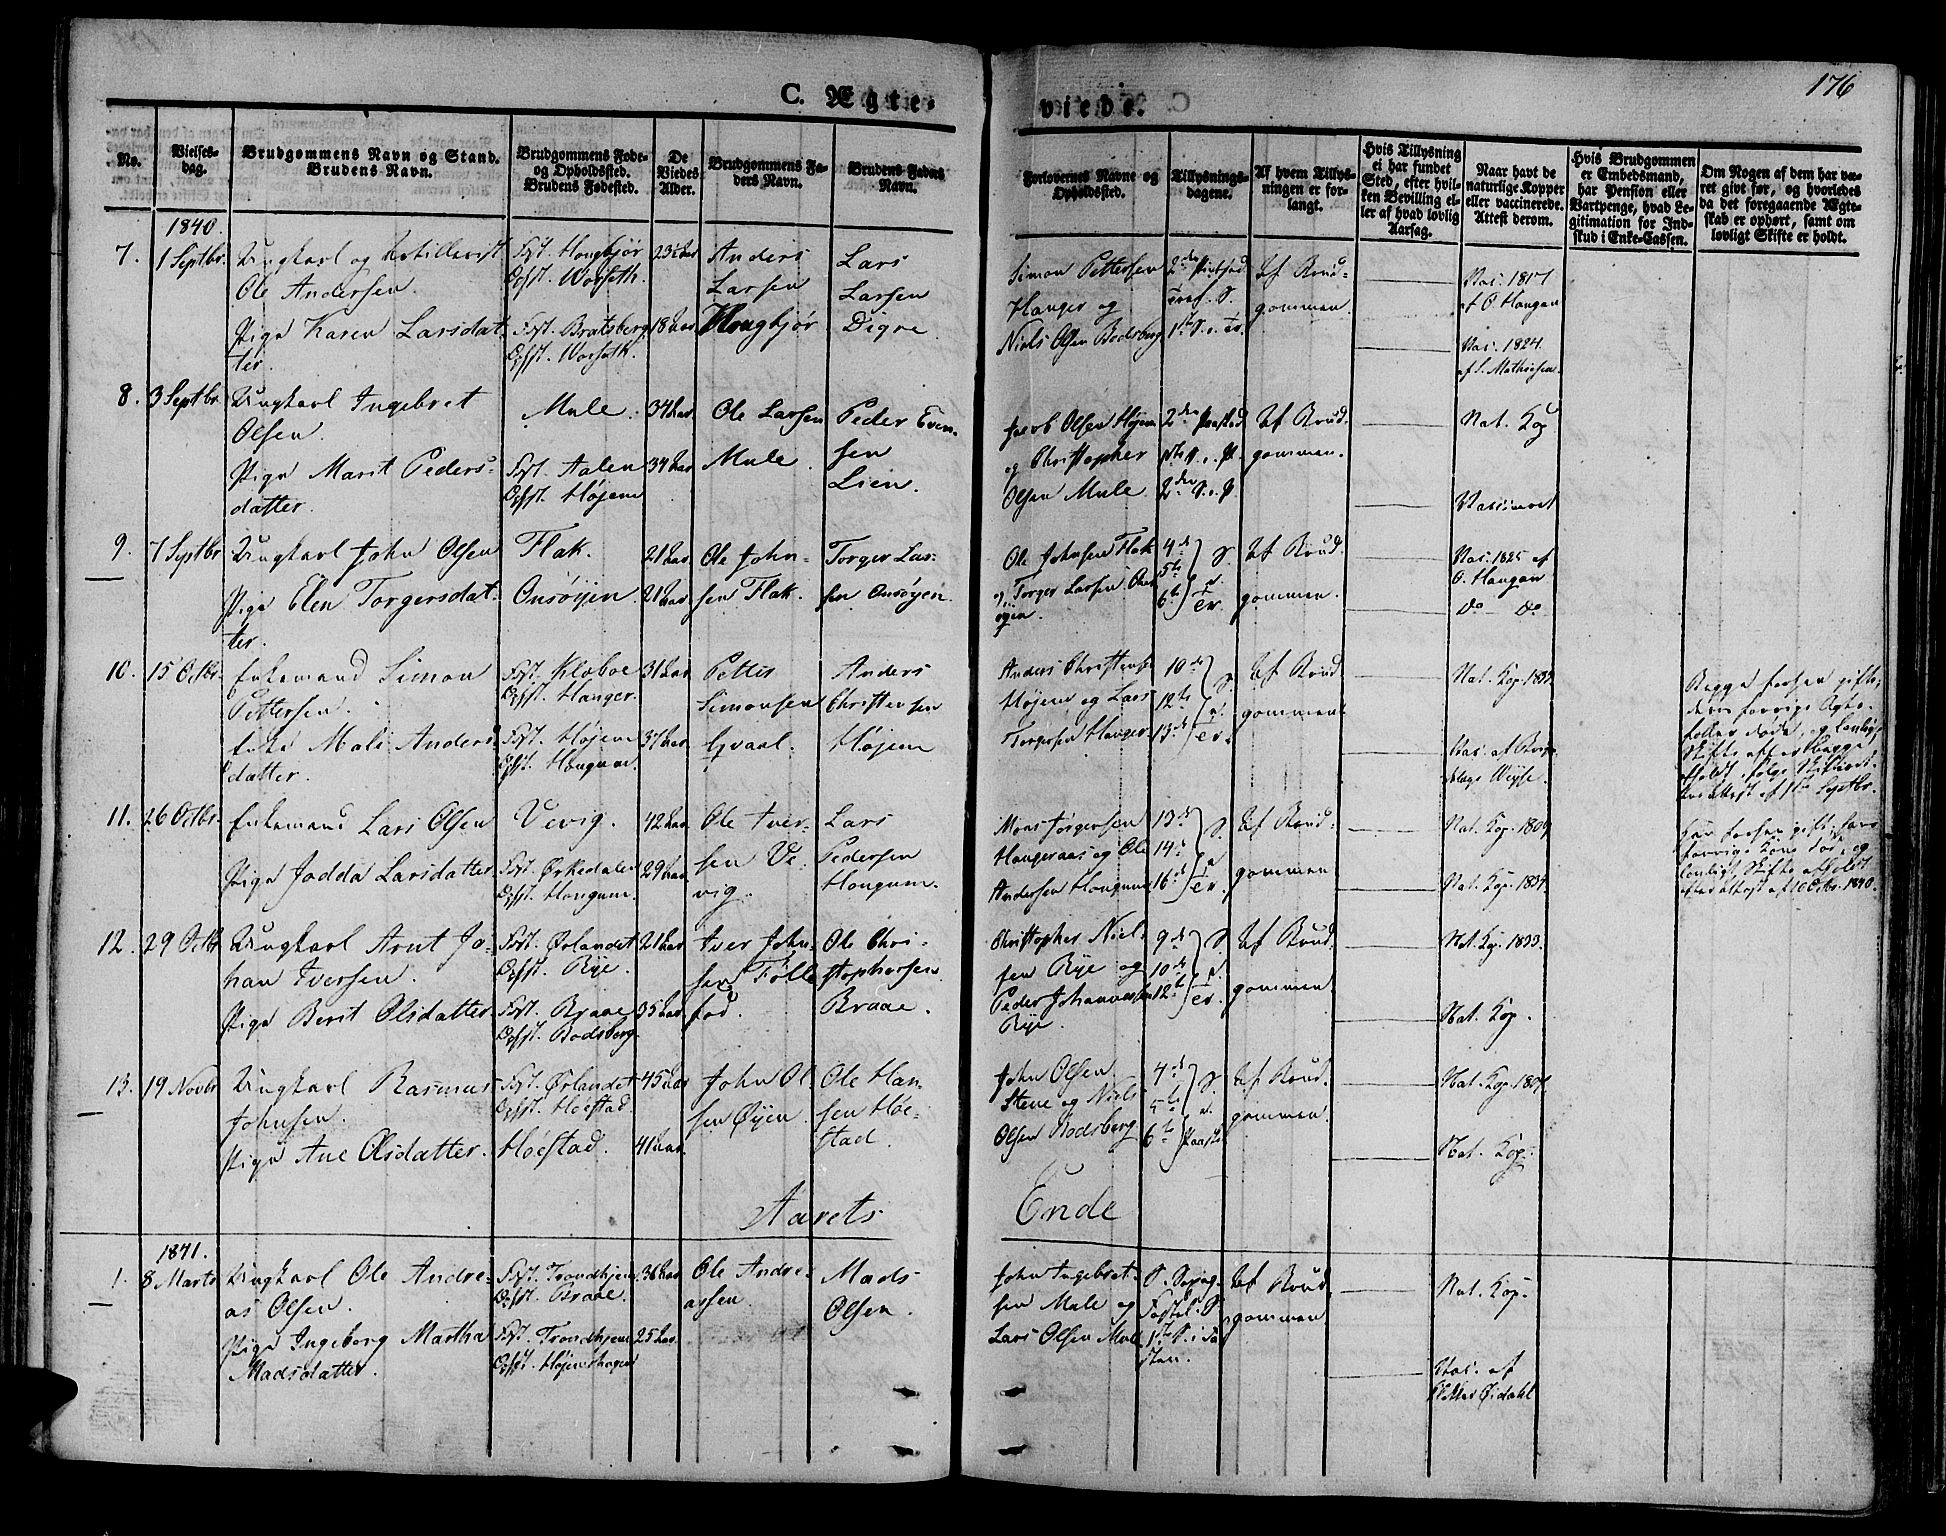 176
C. Ægte-
viede.
No.
Vielses-
dag.
Brudgommens Navn og Stand.
Brudens Navn.
Brudgommens Føde-
og Opholdssted.
Brudens Fødested.
De
Viedes
Alder.
Brudgommens Fa-
ders Navn.
Brudens Faders
Navn.
Forlovernes Navne og
Opholdssted.
Tillysnings-
dagene.
Af hvem Tillys-
ningen er for-
langt.
Hvis Tillysning
ei har fundet
Sted, efter hvil-
ken Bevilling el-
ler af hvad lovlig
Aarsag.
Naar havt de
naturlige Kopper
eller vaccinerede.
Attest derom.
Hvis Brudgommen
er Embedsmand,
har Pension eller
Vartpenge, hvad Le-
gitimation for Ind-
skud i Enke-Cassen.
Om Nogen af dem har væ-
ret givt før, og hvorledes
da det foregaaende Ægte-
skab er ophørt, samt om
lovligt Skifte er holdt.
1840.
7.
1 Septbr.
Ungkarl og Artillerist
Ole Andersen.
Pige Karen Larsdat-
ter.
Fst. Hougbjør
Opst. Worseth.
Fst. Bratsberg
Opst. Worseth.
23 Aar
18 Aar
Anders
Larsen
Hougbjør
Lars
Larsen
Digre
Simon Pettersen
Hanger og
Niels Olsen Bodsberg
1ste S. e. Tr.
Af Brud-
gommen.
Vac. 1817
af O. Haugan
Vac. 1824.
af S. Mathiesen.
8.
3 Septbr
Ungkarl Ingebret
Olsen.
Pige Marit Peders-
datter.
Mule.
Fst. Aalen
Opst. Højem
34 Aar
34 Aar
Ole Larsen
Mule.
Peder Even-
sen
Lien.
Jacob Olsen Højem
og Christopher
Olsen Mule
Af Brud-
gommen.
Nat. Kop
Vaccineret
9.
7 Septbr
Ungkarl John Olsen
Pige Elen Torgersdat-
ter.
Flak.
Onsøyen.
21 Aar
21 Aar
Ole John-
sen Flak.
Torger Lar-
sen Onsøyen.
Ole Johnsen Flak
og Torger Larsen Ons-
øyen.
4de
5te
6te
S.
e.
Tr.
Af Brud-
gommen.
Vac. 1825 af
O. Haugan
Do Do
10.
15 Octbr.
Enkemand Simon
Pettersen.
Enke Mali Anders-
datter.
Fst. Kleboe
Opst. Hanger.
Fst. Højem
Opst. Hougum.
31 Aar
37 Aar
Petter
Simonsen
Qvaal.
Anders
Christensen
Højem
Anders Christensen
Højem og Lars
Torgersen Hanger.
10de
12te
13de
S.
e.
Tr.
Af Brud-
gommen.
Nat. Kop.
Vac. af
Weyse.
Begge forhen gift,
deres forrige Ægte-
fæller døde, og lovligt
Skifte efter begge
afholdt, ifølge Skifteret-
tens Attest af Septbr.
11.
26 Octbr.
Enkemand Lars Olsen
Pige Jodda Larsdatter
Vevig.
Fst. Ørkedalen
Opst. Hougum.
42 Aar
29 Aar
Ole Iver-
sen Ve-
vig.
Lars
Pedersen
Hougum.
Mons Jørgensen
Hangeraas og Ole
Andersen Hougum
13de
14de
16de
S.
e.
Tr.
Af Brud-
gommen
Nat. Kop. 1809
Nat. Kop. 1834.
Han forhen gift, hans
forrige Kone død, og
lovligt Skifte afholdt
efter Attest af 10 Octbr. 1840.
12.
29 Octbr
Ungkarl Arnt Jo-
han Iversen.
Pige Berit Olsdatter.
Fst. Ørlandet
Opst. Rye.
Fst. Braae
Opst. Bodsberg.
21 Aar
35 Aar
Iver John-
sen Tølle-
fod.
Ole Chri-
stophersen
Braae.
Christopher Niel-
sen Rye og
Peder Johannesen
Rye.
9de
10de
12te
S.
e.
Tr.
Af Brud-
gommen.
Nat. Kop. 1833.
Nat. Kop.
13.
19 Novbr
Ungkarl Rasmus
Johnsen.
Pige Ane Olsdatter.
Fst. Ørlandet
Opst. Høestad.
Høestad.
45 Aar
41 Aar.
John Ol-
sen Øyen.
Ole Han-
sen Høe-
stad.
John Olsen
Stene og Niels
Olsen Bodsberg
4de
5te
6te
S.
e.
Paaske
Af Brud-
gommen.
Nat. Kop.
Nat. Kop.
Aarets
Ende
1841.
1.
8 Marts
Ungkarl Ole Andre-
as Olsen.
Pige Ingeborg Martha
Madsdatter.
Fst. Trondhjem
Opst. Braae.
Fst. Trondhjem
Opst. Højemshagen
36 Aar
25 Aar.
Ole Andre-
assen.
Mads
Olsen.
John Ingebret-
sen Mule og
Lars Olsen Mule
Fastel. S.
1ste S. i Fa-
sten.
Af Brud-
gommen.
Nat. Kop.
Vac. af
Petter Øidahl